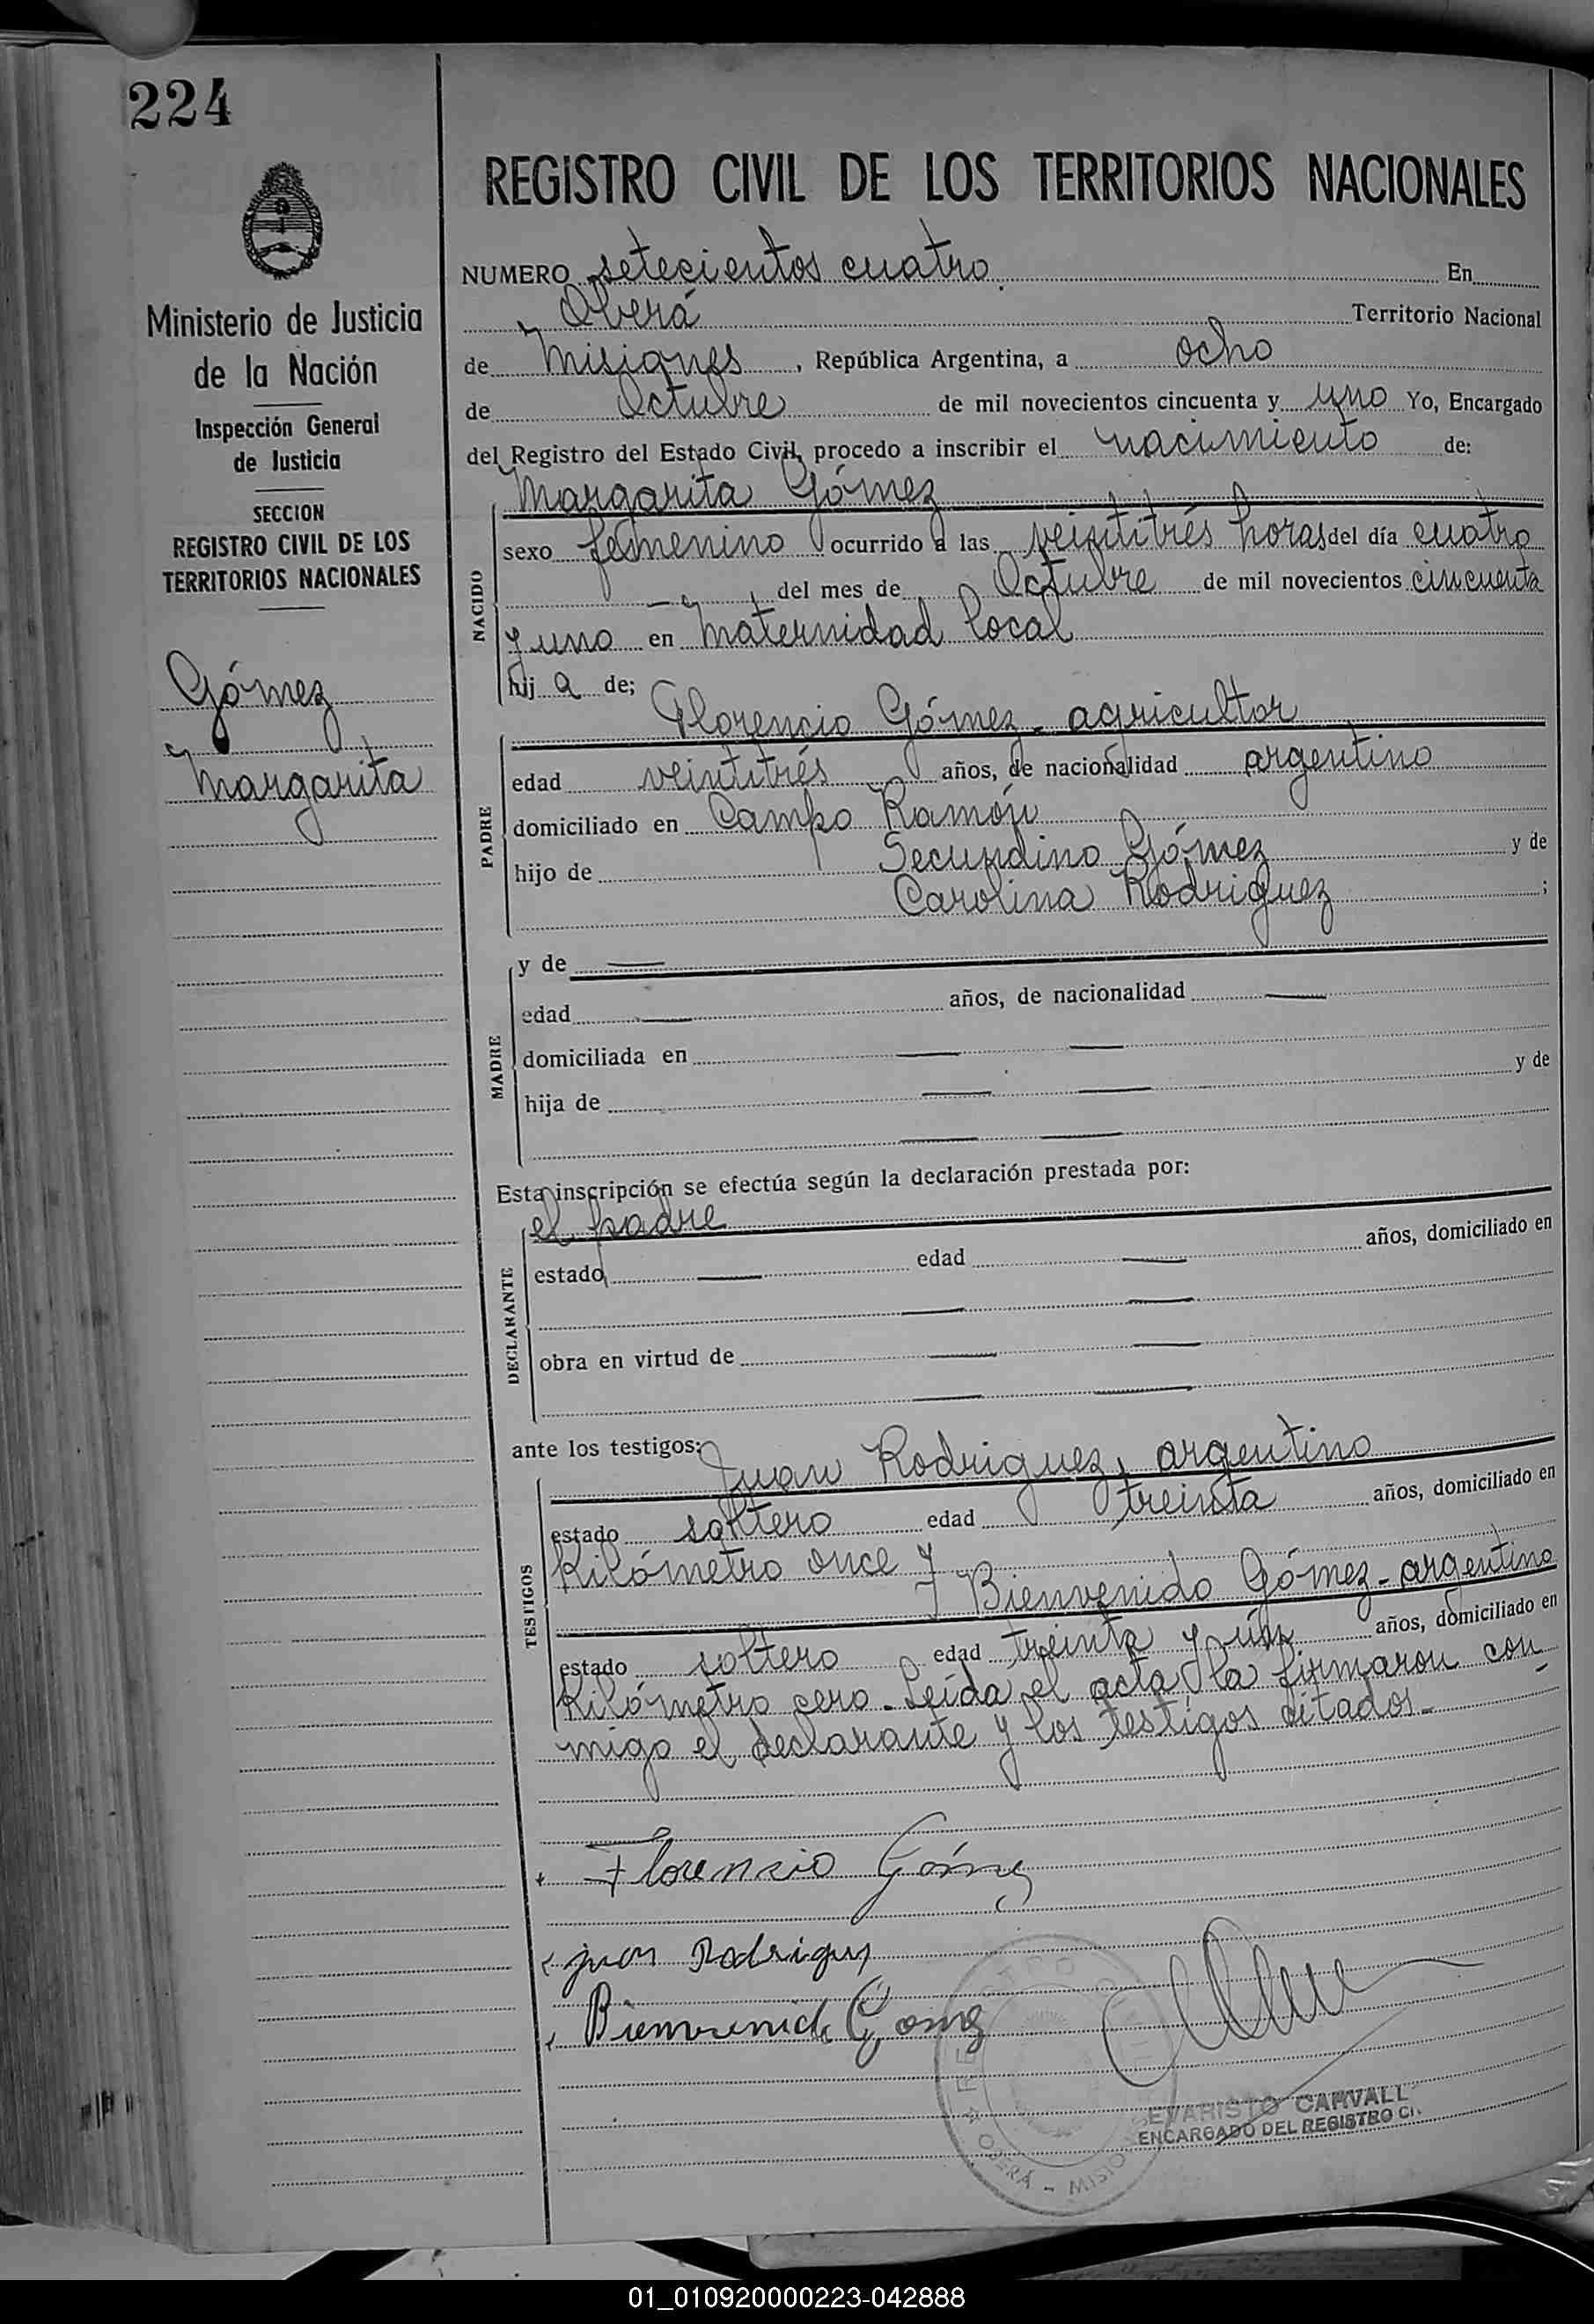 224
Ministerio de Justicia
de la Nación
Inspección General
de Justicia
SECCION
REGISTRO CIVIL DE LOS
TERRITORIOS NACIONALES
Gómez
Margarita
REGISTRO CIVIL DE LOS TERRITORIOS NACIONALES
NUMERO setecientos cuatro En
Oberá Territorio Nacional
de Misiones, República Argentina, a ocho
de Octubre de mil novecientos cincuenta y uno Yo, Encargado
del Registro del Estado Civil, procedo a inscribir el nacimiento de:
Margarita Gómez
NACIDO
sexo femenino ocurrido a las veintitrés horas del día cuatro
del mes de Octubre de mil novecientos cincuenta
y uno en Maternidad local
hij a de;
Florencio Gómez - agricultor
PADRE
edad veintitrés años, de nacionalidad argentino
domiciliado en Campo Ramón
hijo de Secundino Gómez y de
Carolina Rodriguez ;
MADRE
y de —
edad — años, de nacionalidad —
domiciliada en — —
hija de — — y de
— —
Esta inscripción se efectúa según la declaración prestada por:
el padre
DECLARANTE
estado — edad — años, domiciliado en
— —
obra en virtud de — —
— —
ante los testigos:
Juan Rodriguez, argentino
TESTIGOS
estado soltero edad treinta años, domiciliado en
Kilómetro once y
Bienvenido Gómez - argentino
estado soltero edad treinta y un años, domiciliado en
Kilómetro cero. Leída el acta la firmaron con
migo el declarante y los testigos citados.-
Florencio Gómez
juan Rodriguez
Bienvenido Gomez
REGISTRO
OBERÁ - MISIO
EVARISTO CARVALL
ENCARGADO DEL REGISTRO CI
01_010920000223-042888